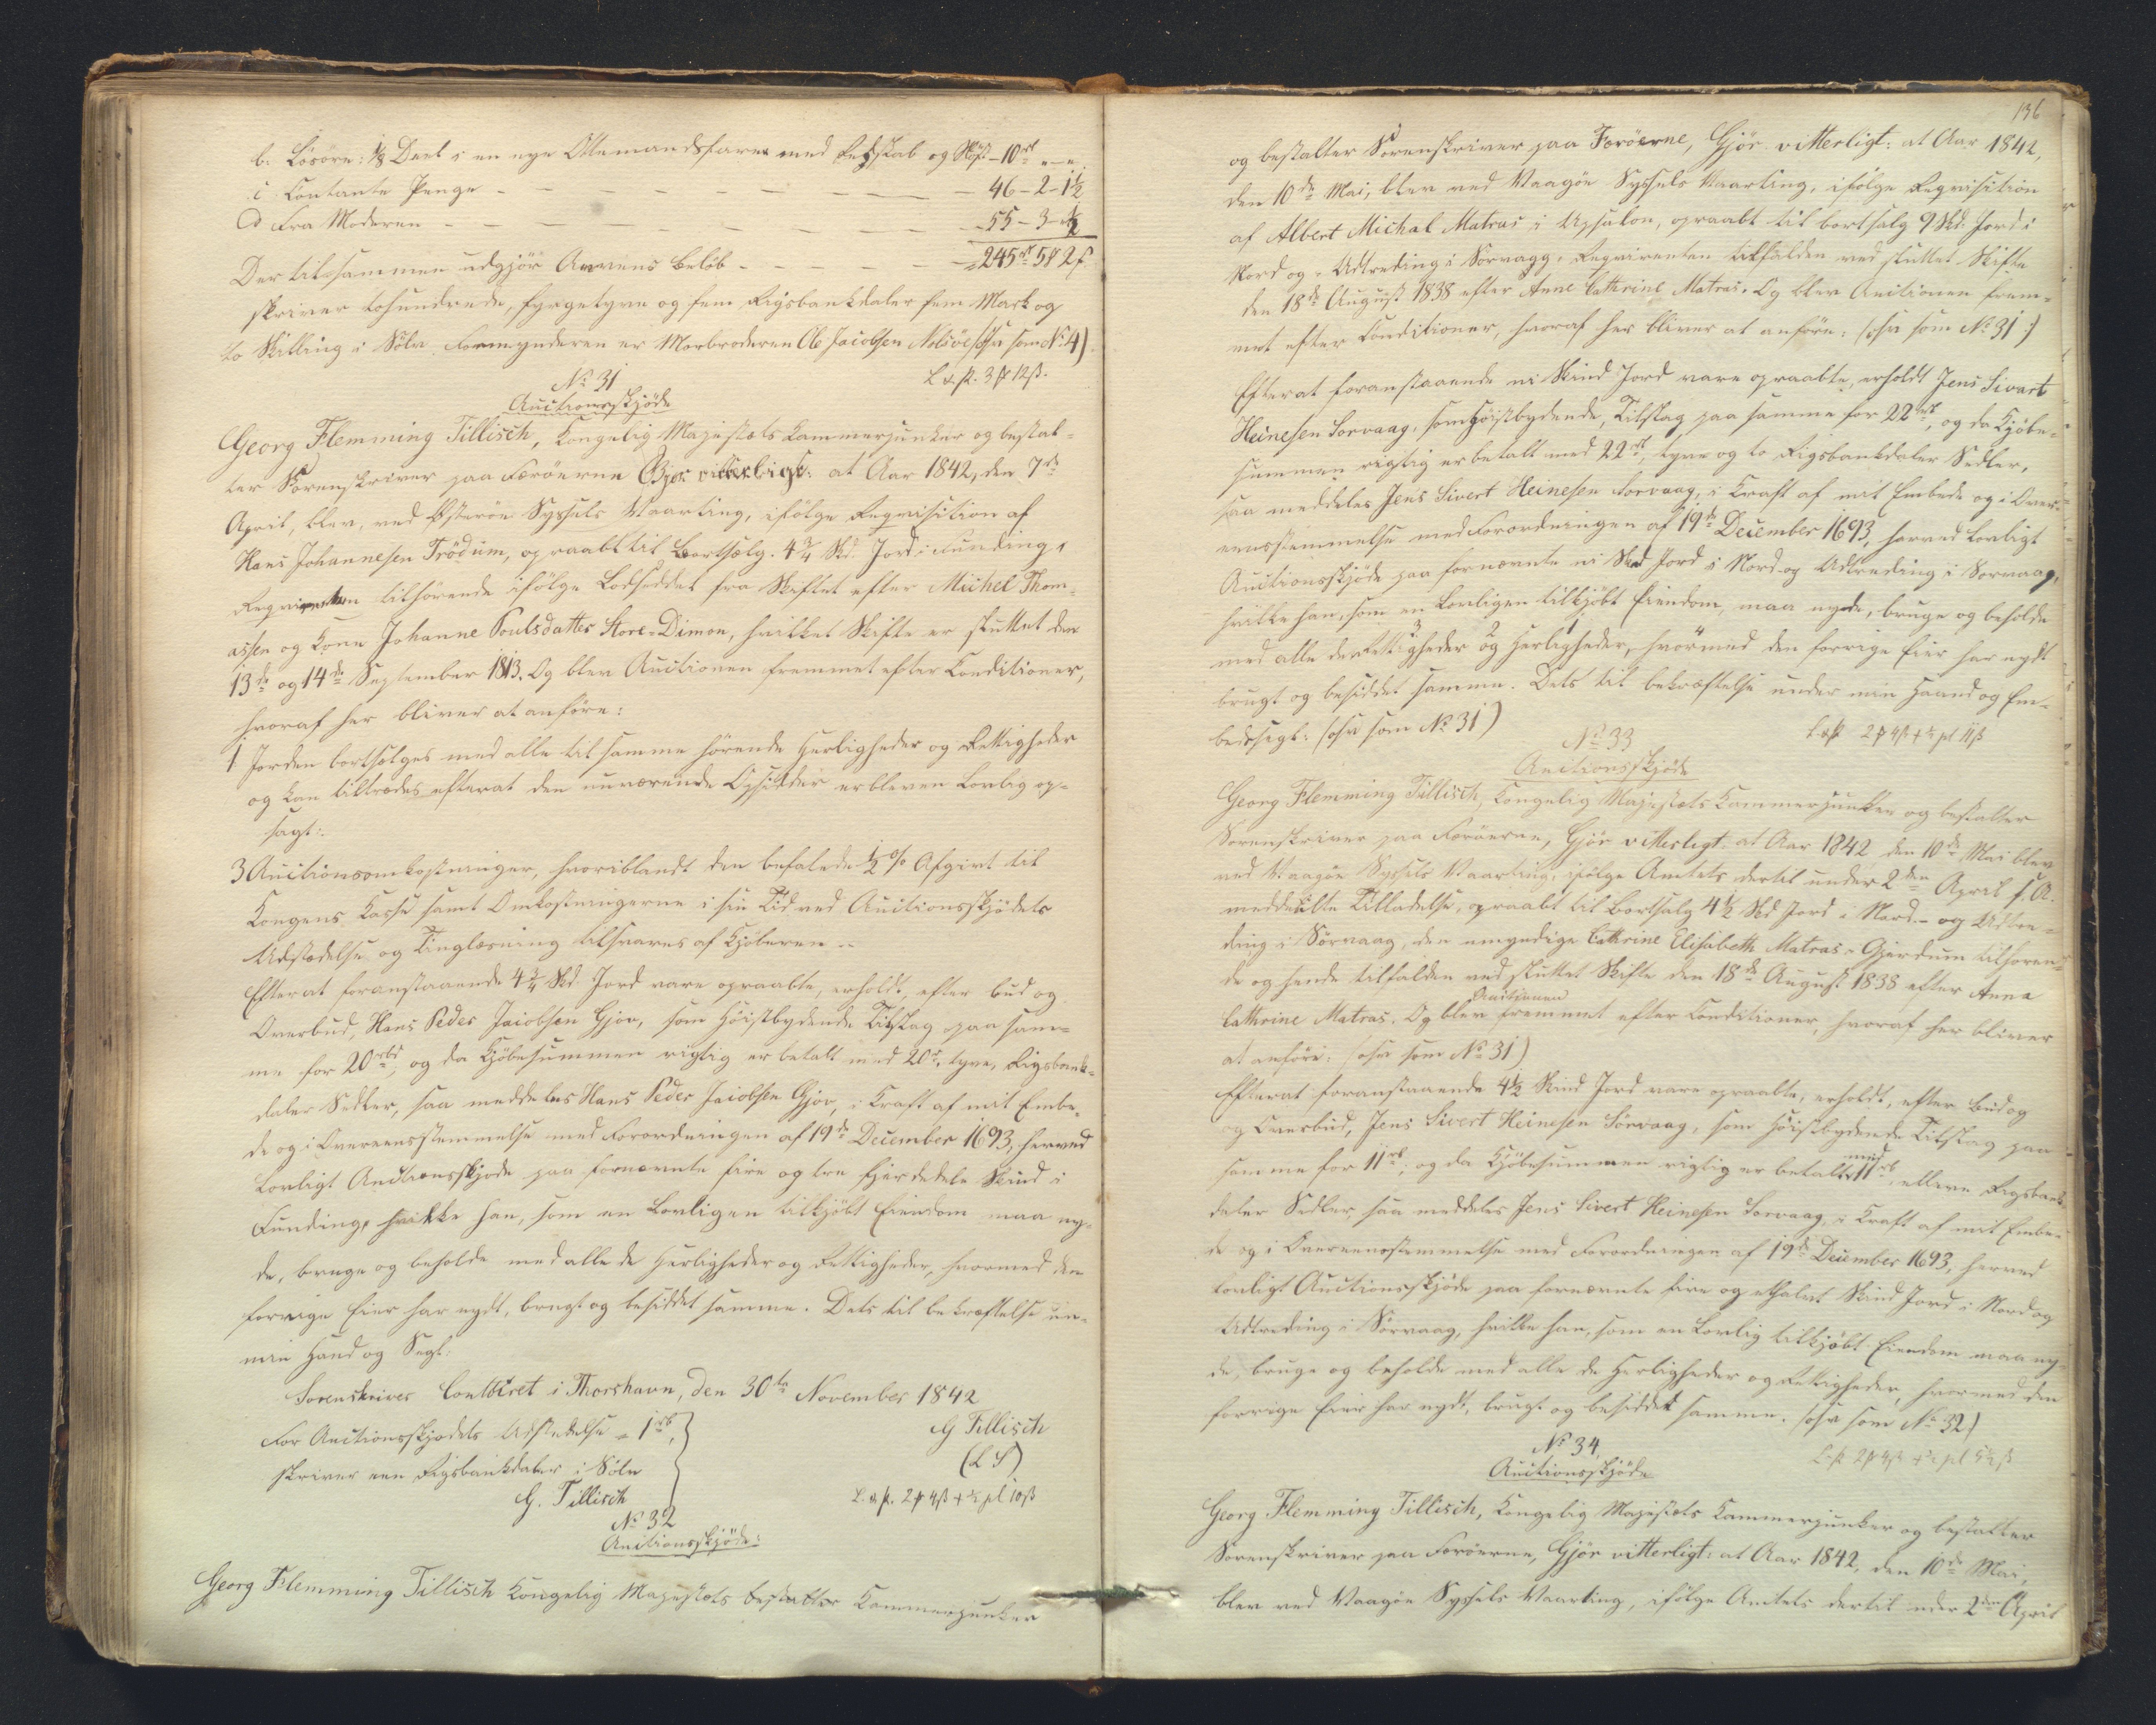 b. Lösöre: 1/8 Deel i en nye Ottemandsfarer med Redskab og Nöst - 10rd „ - „
c Contante Penge - 46 - 2 - 1½
d Fra Moderen - 55 - 3 - ½
Der tilsammen udgjör Arvens Belöb - 245rd 5# 2ß
skriver tohundrede, fyrgetyve og fem Rigsbankdaler fem Mark og
to Skilling i Sölv. Formynderen er Morbroderen Ole Jacobsen Nolsöe (osv som No 4)
L & p. 3 # 12ß.
No 31
Auctionsskjöde
Georg Flemming Tillisch, Kongelig Majestæts Kammerjunker og bestal-
ter Sorenskriver paa Færöerne Gjör vitterligt: at Aar 1842, den 7de
April, blev, ved Österöe Syssels Vaarting, ifölge Reqvisition af
Hans Johannesen Trödum, opraabt til Bortsalg. 4¾ Skd. Jord i Funding,
Reqvirenten tilhörende ifölge Lodseddel fra Skiftet efter Michel Thom-
assen og Kone Johanne Poulsdatter Store-Dimon, hvilket Skifte er sluttet den
13de og 14de September 1813. Og blev Auctionen fremmet efter Conditioner,
hvoraf her bliver at anföre:
1 Jorden bortsælges med alle til samme hörende Herligheder og Rettigheder
og kan tiltrædes efterat den nuværende Opsidder er bleven Lovlig op-
sagt:
3 Auctionsomkostninger, hvoriblandt den befalede ½ % Afgivt til
Kongens Kasse samt Omkostningerne i sin Tid ved Auctionsskjödets
Udstædelse og Tinglæsning tilsvares af Kjöberen -
Efterat foranstaaende 4¾ Skd. Jord vare opraabte, erholdt, efter Bud og
Overbud, Hans Peder Jacobsen Gjov, som Höistbydende Tilslag paa sam-
me for 20rbd, og da Kjöbesummen rigtig er betalt med 20rd, tyve, Rigsbank-
daler Sedler, saa meddeles Hans Peder Jacobsen Gjov, i Kraft af mit Embe-
de og i Overeensstemmelse med Forordningen af 19de December 1693, herved
Lovligt Auctionsskjöde paa fornævnte fire og tre fjerdedele Skind i
Funding, hvilke han, som en Lovligen tilkjöbt Eiendom maa ny-
de, bruge og beholde med alle de Herligheder og Rettigheder, hvormed den
forrige Eier har nydt, brugt og besiddet samme. Dets til bekræftelse un-
min Haand og Segl:
Sorenskriver Contoiret i Thorshavn, den 30te November 1842
For Auctionsskjødets Udstedelse = 1rb,
G Tillisch
skriver een Rigsbankdaler i Sölv
(L S)
G. Tillisch
L. & p. 2 # 4ß + ½ pl 10ß
No 32
Auctionsskjöde:
Georg Flemming Tillisch Kongelig Majestæts bestalter Kammerjunker
136
og bestalter Sorenskriver paa Færöerne, Gjör vitterligt: at Aar 1842,
den 10de Mai, blev ved Vaagöe Syssels Vaarting, ifölge Reqvisition
af Albert Michal Matras i Upsalon, opraabt til bortsalg 9 Skd. Jord i
Nord og Udtreding i Sorvaag, Reqvirenten tilfalden ved sluttet Skifte
den 18de August 1838 efter Anne Cathrine Matras. Og blev Auctionen frem-
met efter Conditioner, hvoraf her bliver at anföre: (osv som No 31)
Efterat foranstaaende ni Skind Jord vare opraabte, erholdt Jens Sivart
Heinesen Sorvaag, som Höistbydende, Tilslag paa samme for 22rd, og da Kjöbe-
summen rigtig er betalt med 22rd, tyve og to Rigsbankdaler Sedler,
saa meddeles Jens Sivert Heinesen Sorvaag, i Kraft af mit Embede og i Over-
eensstemmelse med Forordningen af 19de December 1693, herved Lovligt
Auctionsskjöde paa fornævnte ni Skd Jord i Nord og Udtreding i Sorvaag,
hvilke han, som en Lovligen tilkjöbt Eiendom, maa nyde, bruge og beholde
med alle de Rettigheder og Herligheder, hvormed den forrige Eier har nydt
brugt og besiddet samme. Dets til bekræftelse under min Haand og Em-
bedssegl: (osv som No 31)
L & p 2 # 4ß + ½ pl 11ß
No 33
Auctionsskjöde
Georg Flemming Tillisch, Kongelig Majestæts Kammerjunker og bestalter
Sorenskriver paa Færöerne, Gjör vitterligt: at Aar 1842 den 10de Mai blev
ved Vaagöe Syssels Vaarting, ifölge Amtets dertil under 2den April s. A.
meddeelte Tilladelse, opraabt til Bortsalg 4½ Skd Jord i Nord- og Udtre-
ding i Sörvaag, den umyndige Cathrine Elisabeth Matras Gjerdum tilhören-
de og hende tilfalden ved sluttet Skifte den 18de August 1838 efter Anna
Cathrine Matras. Og blev Auctionen fremmet efter Conditioner, hvoraf her bliver
at anföre: (osv som No 31)
Efterat foranstaaende 4½ Skind Jord vare opraabte, erholdt, efter Bud og
og Overbud, Jens Sivert Heinesen Sörvaag, som Höistbydende Tilslag paa
samme for 11rb, og da Kjöbesummen rigtig er betalt med 11rb, elleve Rigsbank
daler Sedler, saa meddeles Jens Sivert Heinesen Sorvaag, i Kraft af mit Embe-
de og i Overeensstemmelse med Forordningen af 19de December 1693, herved
Lovligt Auctionsskjöde paa fornævnte fire og ethalvt Skind Jord i Nord og
Udtreding i Sörvaag, hvilke han, som en Lovlig tilkjöbt Eiendom maa ny-
de, bruge og beholde med alle de Herligheder og Rettigheder, hvormed den
forrige Eier har nydt, brugt og besiddet samme. (osv som No 32)
L. p. 2 # 4ß + ½ pl 5½ ß
No 34
Auctionsskjöde
Georg Flemming Tillisch, Kongelig Majestæts Kammerjunker og bestalter
Sorenskriver paa Færöerne, Gjör vitterligt: at Aar 1842, den 10de Mai,
blev ved Vaagöe Syssels Vaarting, ifölge Amtets dertil under 2den April